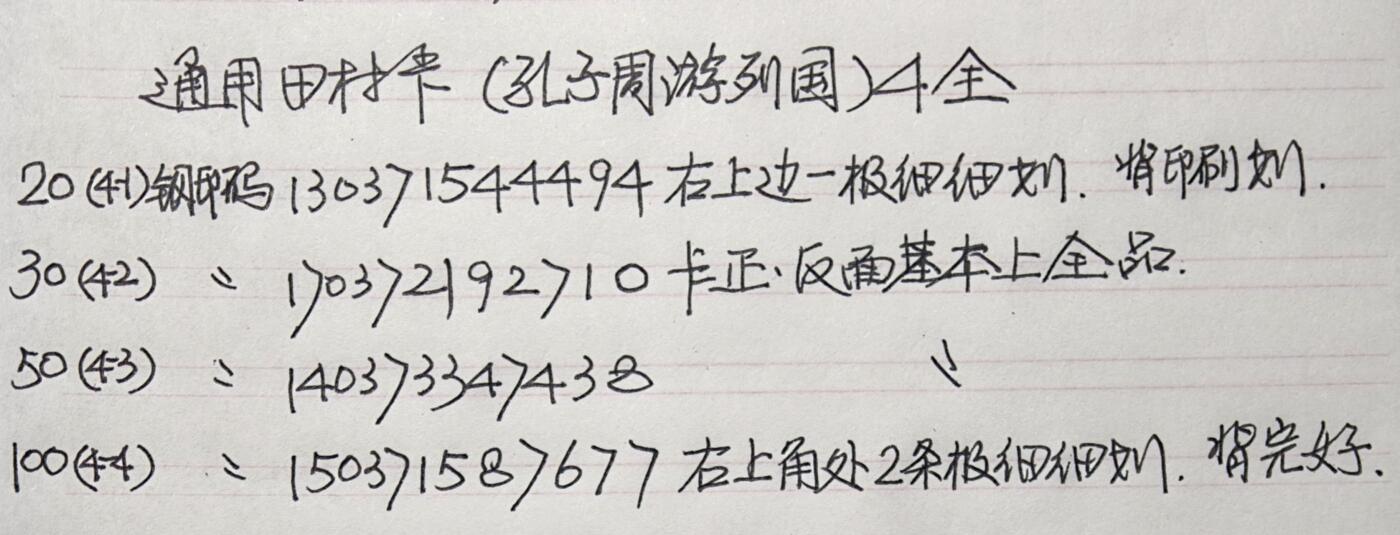 通用田村卡(孔子周游列国)4全
20(4-1)钢印码 130371544494 右上边一极细细划. 背印刷划.
30(4-2) 〃 170372192710 卡正.反面基本上全品.
50(4-3) 〃 140373347438 〃
100(4-4) 〃 150371587677 右上角处2条极细细划. 背完好.